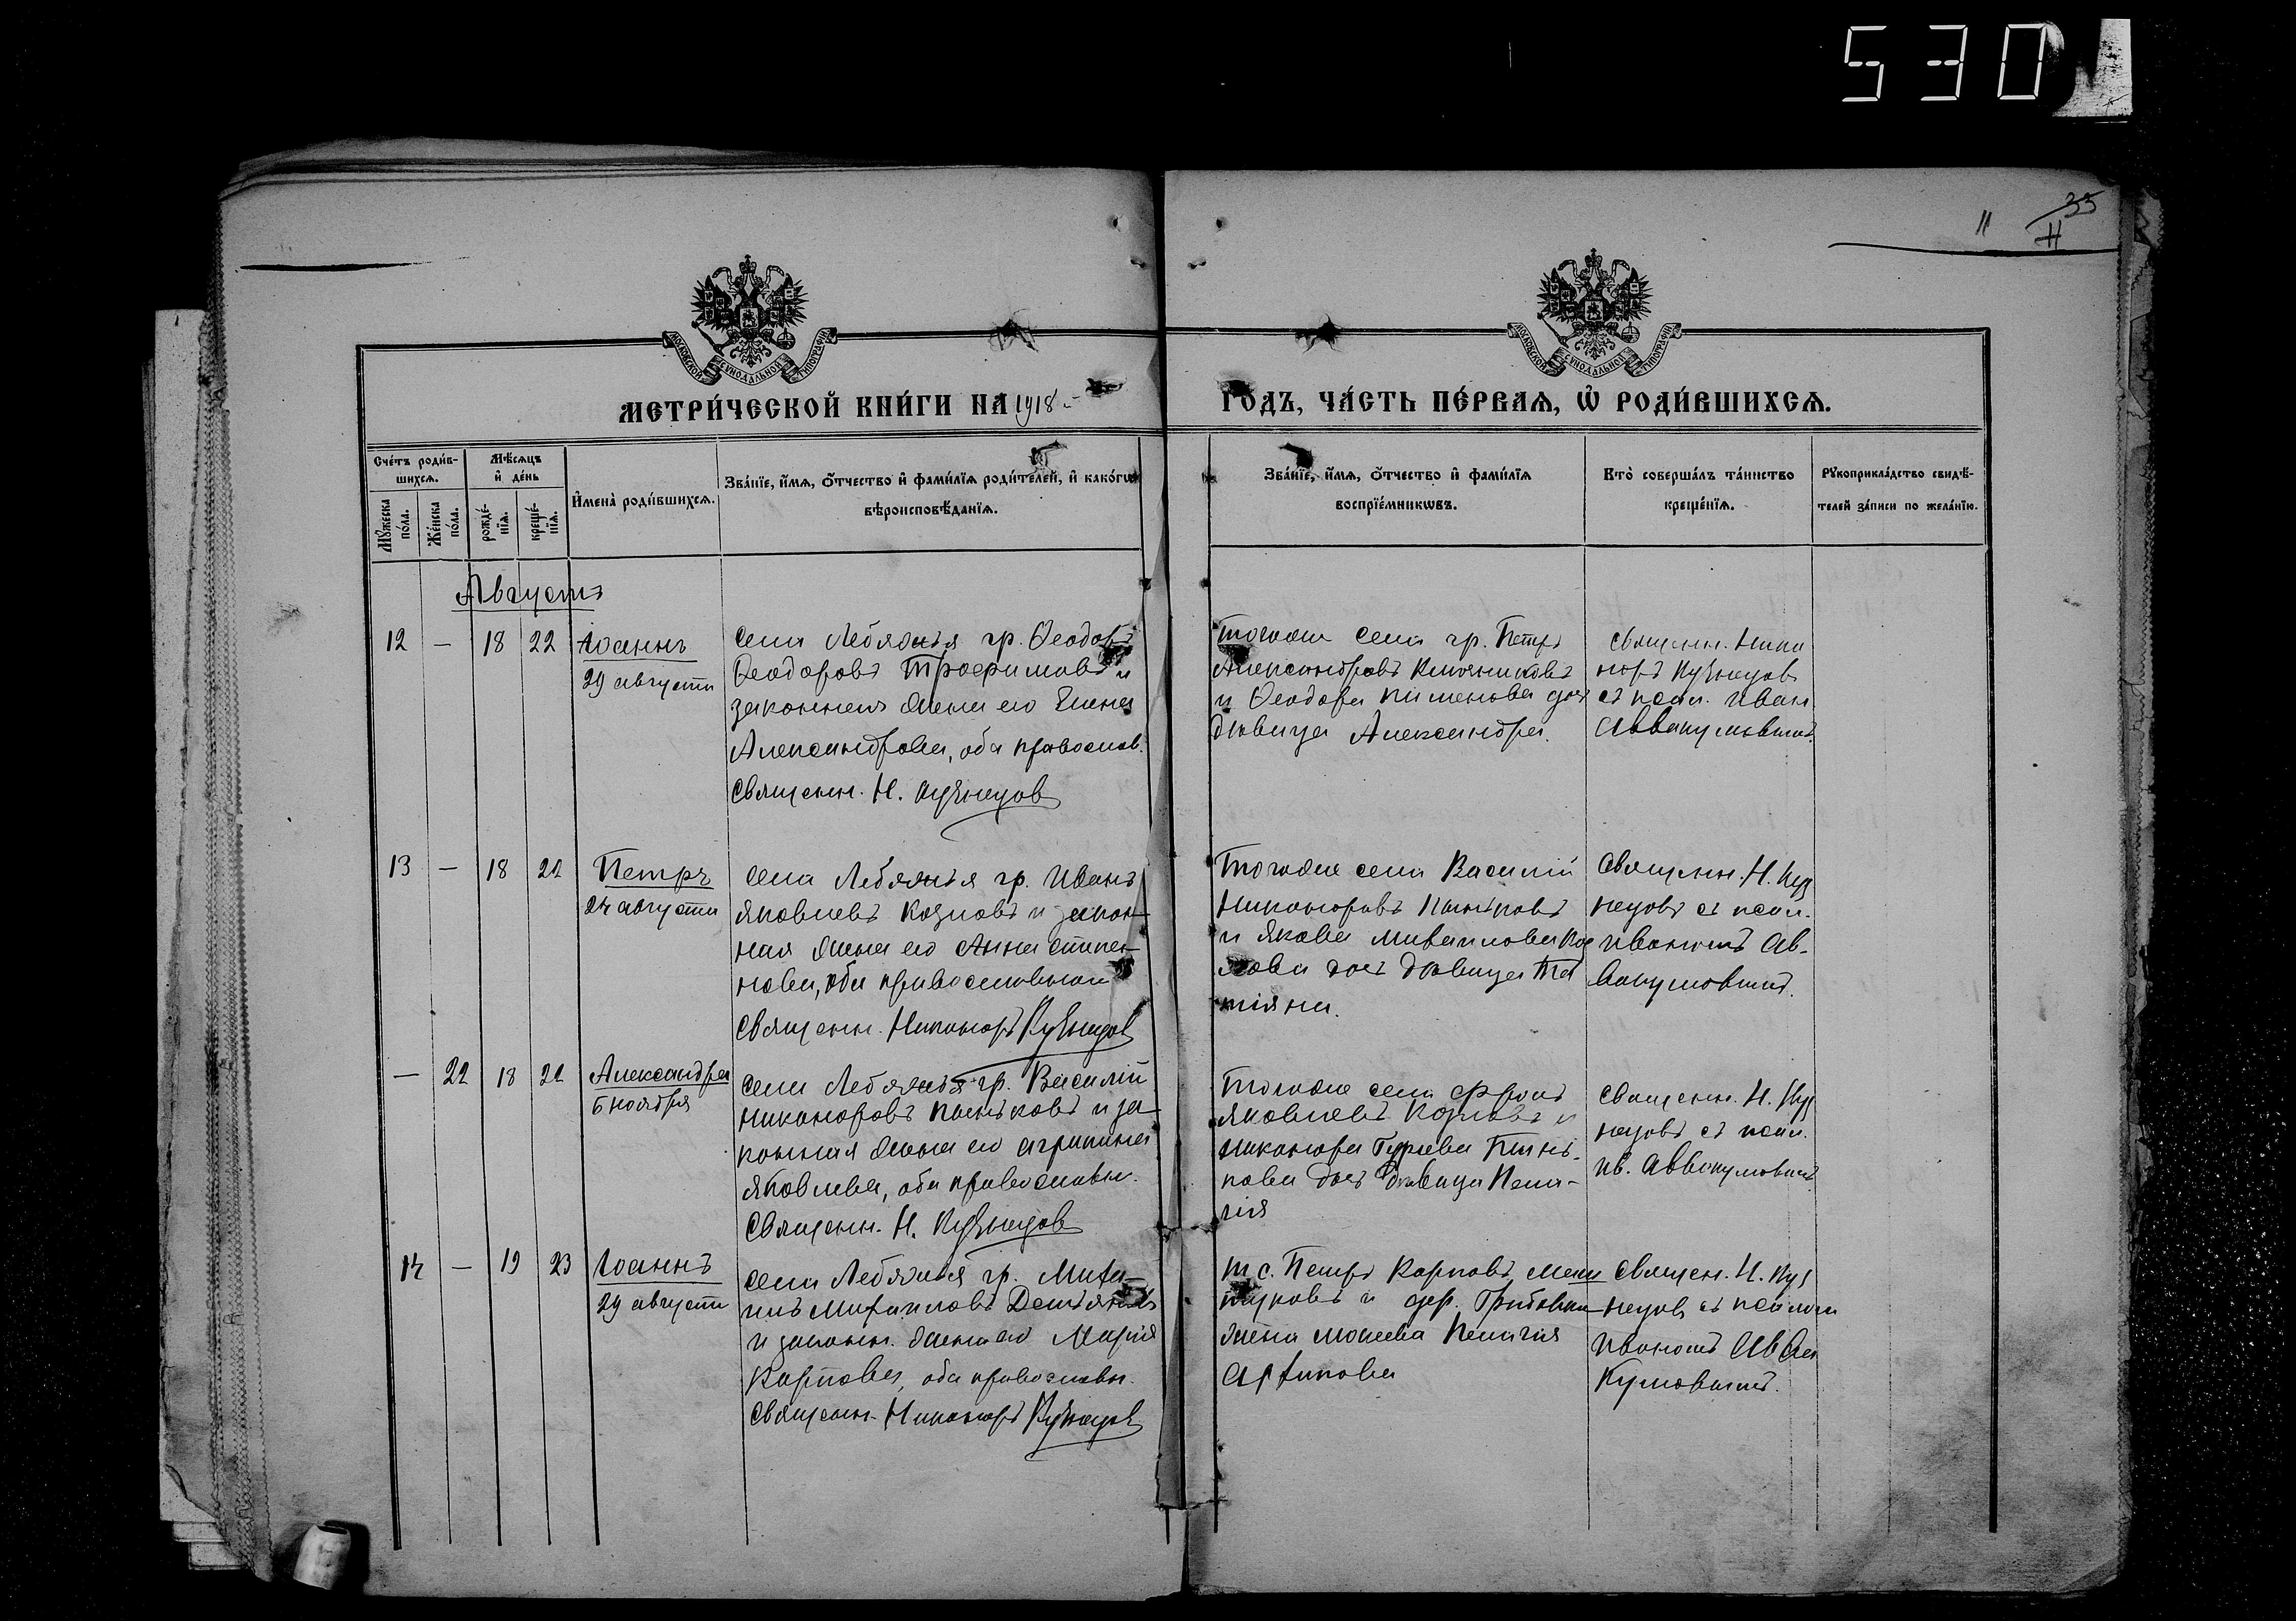 530
11
33
11
МОСКОВСКОЙ СѴНОДАЛЬНОЙ ТИПОГРАФІИ
МОСКОВСКОЙ СѴНОДАЛЬНОЙ ТИПОГРАФІИ
МЕТРИ́ЧЕСКОЙ КНИ́ГИ НА 1918
ГОДЪ, ЧА́СТЬ ПЕ́РВАѦ, Ѡ҆ РОДИ́ВШИХСѦ.
Сче́тъ роди́в-
шихсѧ.
Мꙋ́жеска по́ла.
Же́нска по́ла.
Мѣ́сѧцъ и҆ де́нь
рожде́-нїѧ.
креще́-нїѧ.
И҆мена̀ роди́вшихсѧ.
Зва́нїе, и҆́мѧ, ѻ҆́тчество и҆ фами́лїѧ роди́телей, и҆ како́гѡ
вѣроисповѣ́данїѧ.
Зва́нїе, и҆́мѧ, ѻ҆́тчество и҆ фами́лїѧ
воспрїе́мникѡвъ.
Кто̀ соверша́лъ та́инство
креще́нїѧ.
Рꙋкоприкла́дство свидѣ́-
телей за́писи по жела́нїю.
Августъ
12 — 18 22 Іоаннъ
29 августа
села Лебяжья гр. Ѳеодоръ
Ѳеодоровъ Трофимовъ и
законная жена его Елена
Александрова, оба православ.
Священн. Н. Кузнецов
тогоже села гр. Петръ
Александровъ Ключниковъ
и Ѳеодора Пименова доч
дѣвица Александра.
Священн. Ника
норъ Кузнецовъ
съ псал. Иван
Аввакумовымъ.
13 — 18 22 Петръ
24 августа
села Лебяжья гр. Иванъ
Яковлевъ Козловъ и закон-
ная жена его Анна Степа-
нова, оба православные
Священн. Никаноръ Кузнецов
Тогоже села Василій
Никаноровъ Паньковъ
и Якова Михаилова Коз
лова дочь дѣвица Та
тіяна.
Священн. Н. Куз
нецовъ съ псал.
Иваномъ Ав-
вакумовымъ.
— 22 18 22 Александра
6 ноября
села Лебяжья гр. Василій
Никаноровъ Паньковъ и за-
конная жена его Агрипина
Яковлева, оба православн.
Священн. Н. Кузнецов
Тогоже села
Яковлевъ Козловъ и
Никанора Гурьева Пань-
кова дочь дѣвица Пела-
гія
Священн. Н. Куз
нецовъ съ псал.
Ив. Аввакумовымъ
14 — 19 23 Іоаннъ
29 августа
села Лебяжья гр. Миха-
илъ Михаиловъ
и законн. жена его Марія
Карпова, оба православн.
Священн. Никаноръ Кузнецов
т. с. Петръ Карповъ
и дер.
жена Моисеева Пелагія
Архипова
Священ. Н. Куз
нецов съ псалом
Иваномъ Авва
кумовымъ.